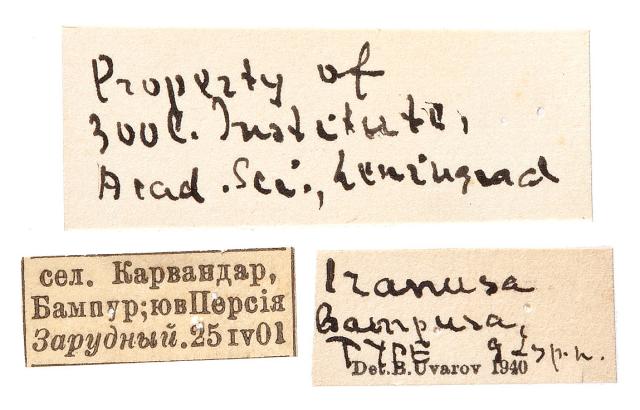 Property of
Zool. Institute,
Acad. Sci., Leningrad
сел. Карвандар,
Бампур; юв Персія
Зарудный. 25 IV 01
Iranusa
bampura,
TYPE g. sp. n.
Det. B. Uvarov 1940